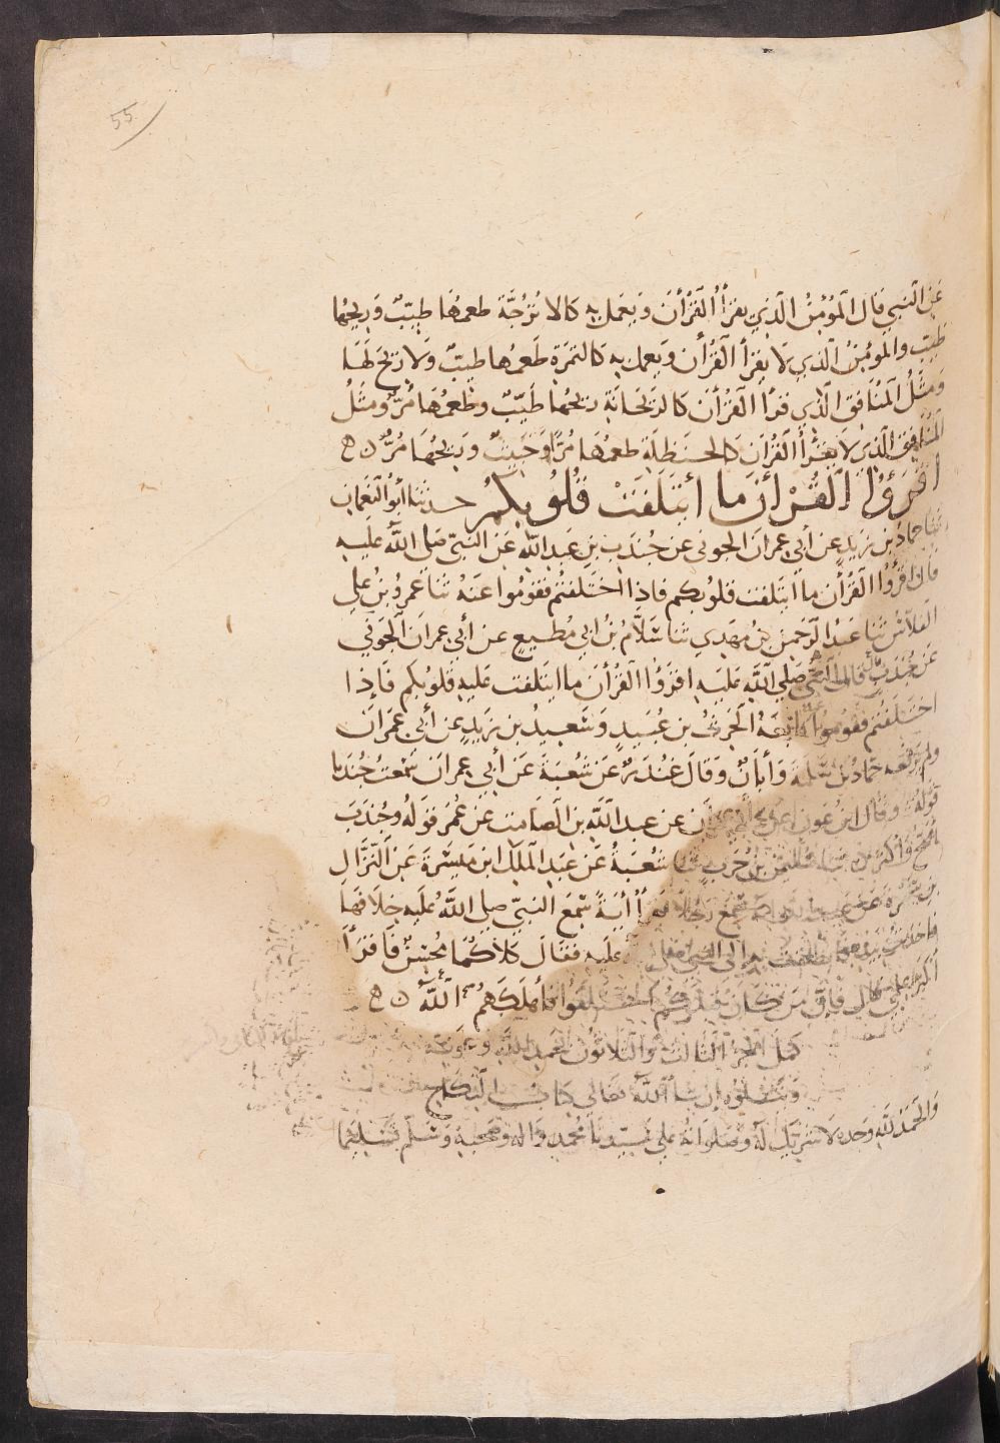 55
عَنِ النَّبِيِّ قَالَ المُؤْمِنُ الَّذِي يَقْرَأُ القُرْأَنَ وَيَعْمَلُ بِهِ كَالاُتْرُجَّةِ طَعْمُهَا طَيِّبٌ وَرِيحُهَا
طَيِّبٌ والمُومِنُ الَّذِي لَا يَقْرَأُ القُرْأَن وَيَعمل بِهِ كَالتَمرَةِ طَعمُها طيِّبٌ وَلَا رِيحَ لَهَا
وَمَثَلُ المُنَافِقِ الَّذِي يَقْرَأُ القُرْأَنَ كالرَّيْحَانَةِ رِيحُهَا طَيِّبٌ وطَعمُهَا مُرٌّ ومَثَلُ
المُنَافِقِ الَّذِي لَا يَقْرَأُ القُرْأَن كالحَنظَلَةِ طعمُهَا مُرٌّ اَوْ خَبِيثٌ وَرِيحُهَا مُرٌّ ن ه
اقْرَؤُا القُرْأَنَ ما ائْتَلَفَتْ قُلُوبكُمْ حدثنا أبُو النُّعْمَانِ
ثنا حمادُ بن زَيدٍ عن أبي عِمرانَ الجوني عن جُندَبِ بنِ عَبدِ اللهِ عَنِ النَّبيِّ صلى اللهُ عليه
قال اقْرَؤُا القُرْأن ما ائتَلفت قلوبكم فاذا اختَلفتُم فقومُوا عنهُ ثنا عَمرُو بْنُ علي
الفلاس ثنا عبدُ الرَّحمنِ بنُ مهدي ثنا سَلَّامُ بنُ ابي مُطيعٍ عن أبي عمران الجَونِي
عن جُندَبٍ قال قال النبي صلى اللهُ عليه اقرَؤُا القُرْأَنَ ما ائتلفت عليه قلوبكم فَإذا
اختلفتُم فقوموا عنه تابعهُ الحَرثُ بن عُبَيدٍ وَسَعيدُ بن زَيدٍ عن أبي عمران
ولم يَرفعه حمادُ بن سَلمَةَ وَأبانُ وَقَال غُندَرٌ عَن شُعبَةَ عَن أبي عمرانَ سَمعتُ جُندَبا
قَولَهُ وقَال ابنُ عَونٍ عن ابي عمران عن عبد اللهِ بن الصَّامتِ عن عُمَرَ قَولَهُ وجُندَبٌ
اصَحُّ وَاكثَرُ ثنا سُليمنُ بنُ حَربٍ ثنا شُعبَةُ عَن عَبدِ المَلِكِ ابن مَيسَرَةَ عَن النَّزَّالِ
بن سَبْرَةَ عَن عبد الله انه سَمِعَ رَجُلا يَقرَأُ أيَةً سمعَ النبيَّ صلى اللهُ عليه خِلافَهَا
فاخذتُ بيده فانطلقت به الى النبي صلى الله عليه فقَالَ كِلاكُمَا مُحْسِنٌ فَاقرَأَا
أكبَرُ علمي قال فانَّ مَن كَانَ قَبلَكُم اختَلَفُوا فَأَهلَكَهُمُ اللَّهُ ن ه
كَمَلَ الجزءُ الثالث والثَلاثُون بحمدِ اللهِ وَعَونه
وَيَتلُوه إن شاء اللَّه تعالى كتاب النكاح
والحَمدُ لله وحده لَا شَريكَ لَهُ وصَلوَاتُهُ على سيّدِنا مُحمدٍ وَاله وصَحبِهِ وَسَلَّم تَسْلِيمًا